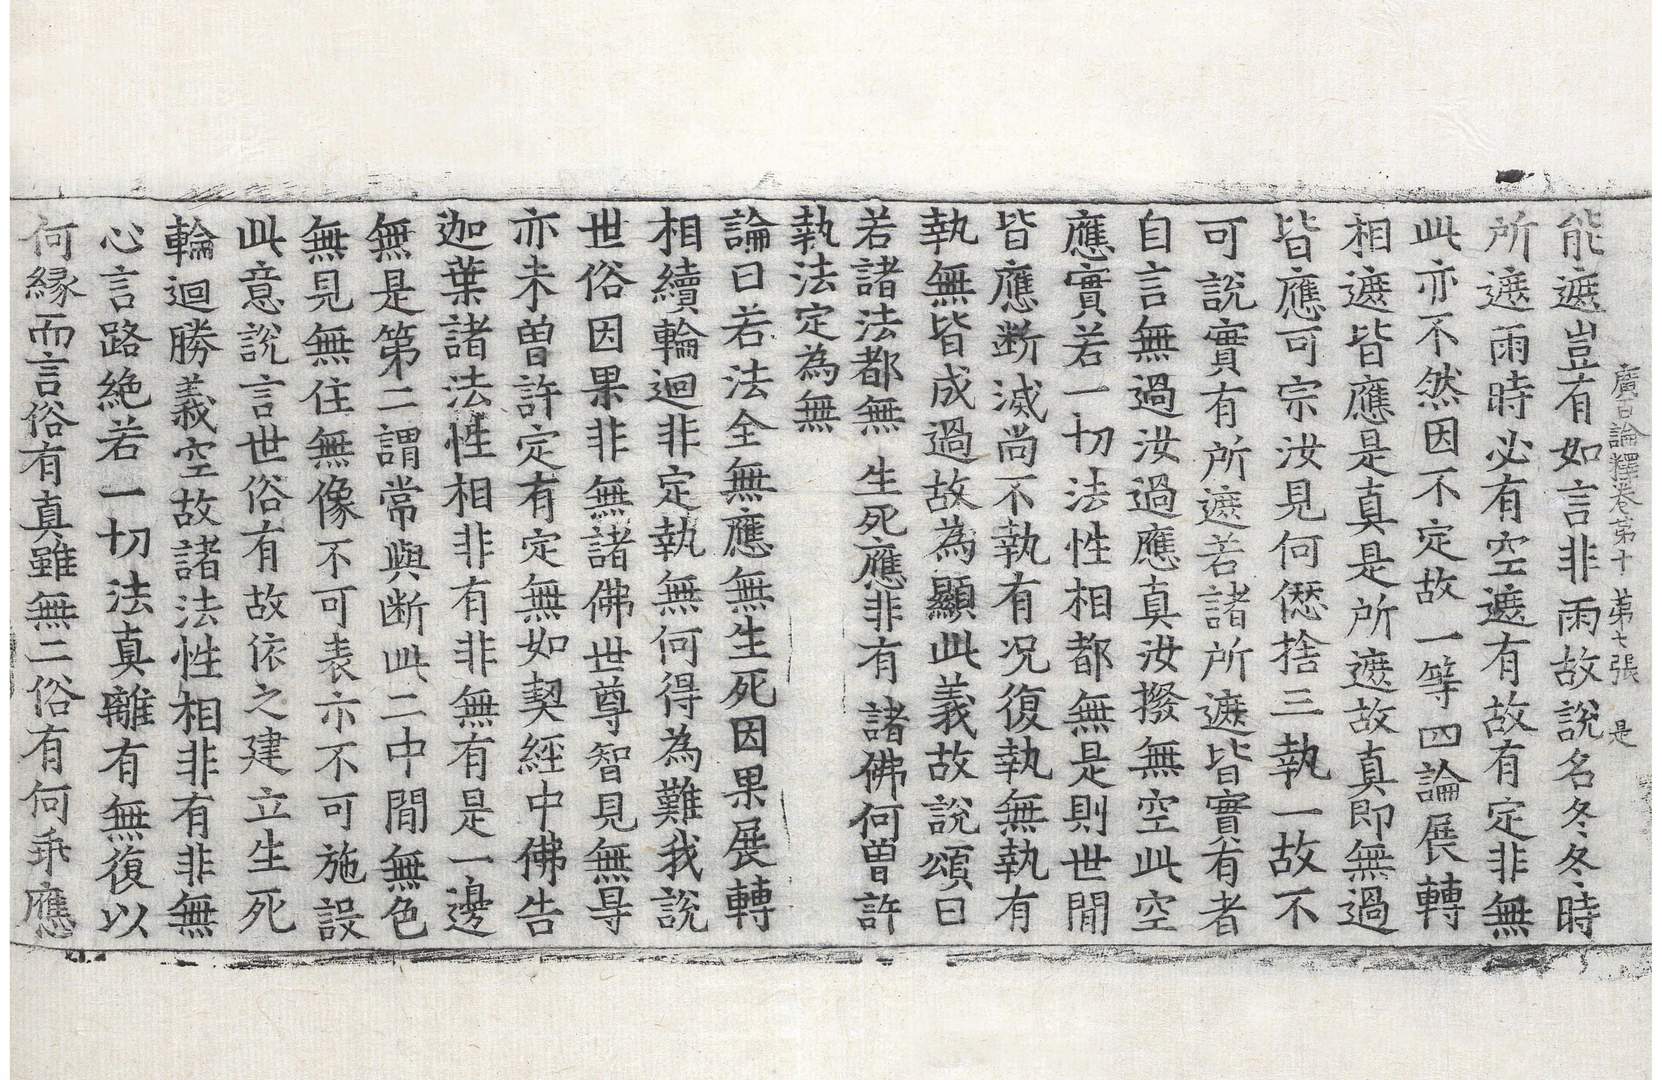 廣百論釋卷第十 第七張 是
能遮豈有如言非雨故說名冬冬時
所遮雨時必有空遮有故有定非無
此亦不然因不定故一等四論展轉
相遮皆應是真是所遮故真即無過
皆應可宗汝見何僁捨三執一故不
可說實有所遮若諸所遮皆實有者
自言無過汝過應真汝撥無空此空
應實若一切法性相都無是則世間
皆應斷滅尚不執有况復執無執有
執無皆成過故為顯此義故說頌曰
若諸法都無 生死應非有 諸佛何曽許
執法定為無
論曰若法全無應無生死因果展轉
相續輪迴非定執無何得為難我說
世俗因果非無諸佛世尊智見無㝵
亦未曽許定有定無如契經中佛告
迦葉諸法性相非有非無有是一邊
無是第二謂常與断此二中間無色
無見無住無像不可表亦不可施設
此意說言世俗有故依之建立生死
輪迴勝義空故諸法性相非有非無
心言路絶若一切法真離有無復以
何縁而言俗有真雖無二俗有何乖應